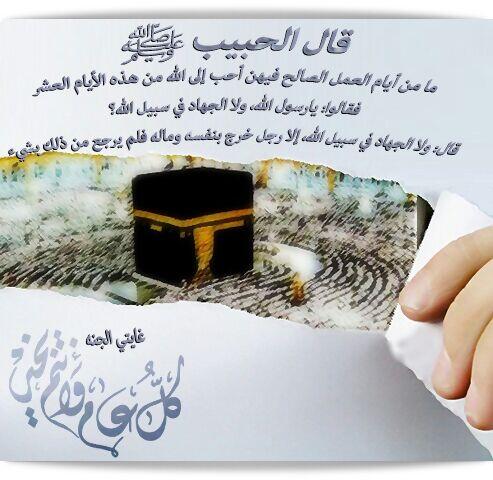 قال الحبيب ﷺ
ما من أيام العمل الصالح فيهن أحب إلى الله من هذه الأيام العشر
فقالوا: يارسول الله، ولا الجهاد في سبيل الله؟
قال: ولا الجهاد في سبيل الله، إلا رجل خرج بنفسه وماله فلم يرجع من ذلك بشيء
غايتي الجنه
كل عام وأنتم بخير